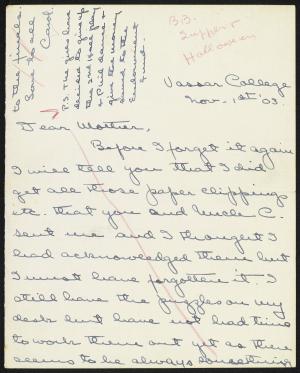 to the finals.
Love to all
Carol
P.S. The girls have
decided to give up
the 2nd Hall play
& Phil dance &
give the money
saved to the
Endowment
Fund.
B.B.
Supper &
Halloween
Vassar College
Nov. 1st '03.
Dear Mother,
Before I forget it again
I will tell you that I did
get all those paper clippings
etc. that you and Uncle C.
sent me and I thought I
had acknowledged them but
I must have forgotten it. I
still have the puzzles on my
desk but have not had time
to work them out yet as there
seems to be always something